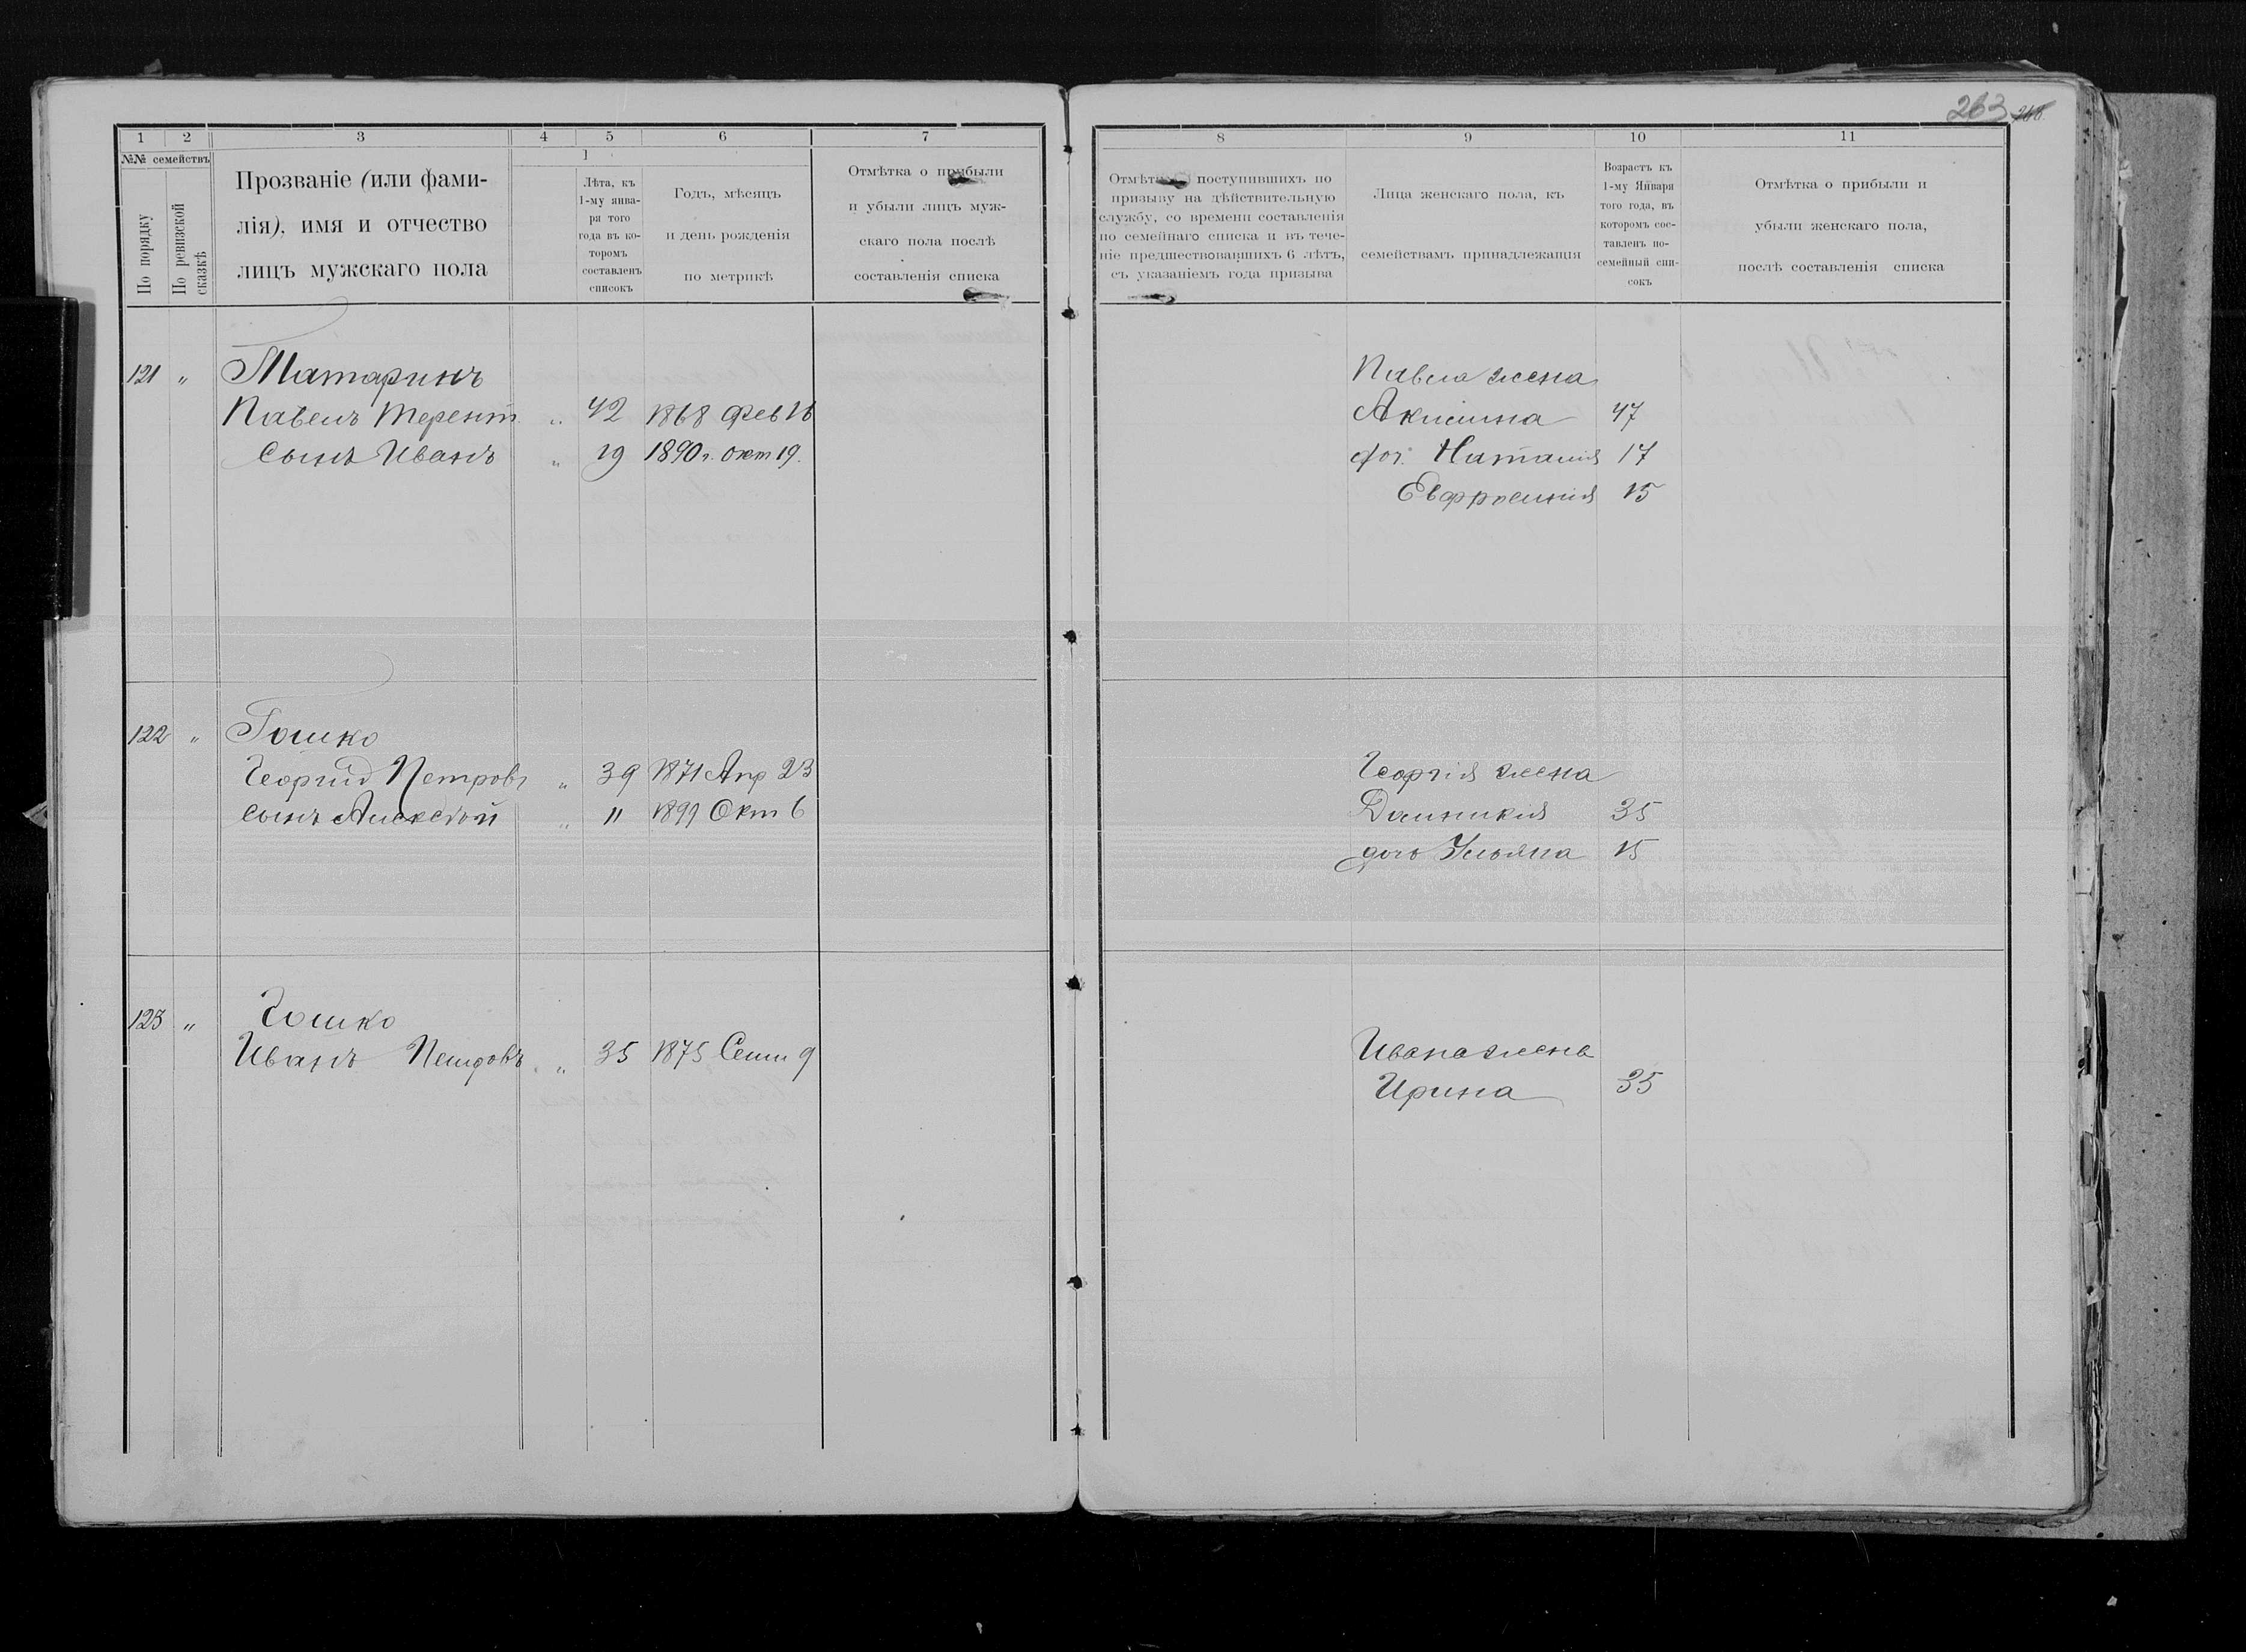 263 268
1 2 3 4 5 6 7
№№ семействъ
По порядку
По ревизской сказкѣ
Прозваніе (или фами-
лія), имя и отчество
лицъ мужскаго пола
Лѣта, къ
1-му янва-
ря того
года въ ко-
торомъ
составленъ
списокъ
Годъ, мѣсяцъ
и день рожденія
по метрикѣ
Отмѣтка о прибыли
и убыли лицъ муж-
скаго пола послѣ
составленія списка
121 " Татаринъ
Павелъ Терент. " 42 1868 Фев 16
Сынъ Иванъ " 19 1890 г. окт 19.
122 " Гошко
Георгій Петровъ " 39 1871 Апр 23
сынъ Алексѣй " 11 1899 Окт 6
123 " Гошко
Иванъ Петровъ " 35 1875 Сент 9
8 9 10 11
Отмѣтка поступившихъ по
призыву на дѣйствительную
службу, со времени составленія
по семейнаго списка и въ тече-
ніе предшествовавшихъ 6 лѣтъ,
съ указаніемъ года призыва
Лица женскаго пола, къ
семействамъ принадлежащія
Возрастъ къ
1-му Января
того года, въ
которомъ сос-
тавленъ по-
семейный спи-
сокъ
Отмѣтка о прибыли и
убыли женскаго пола,
послѣ составленія списка
Павла жена
Акилина 47
доч. Наталія 17
Евфросинія 15
Георгія жена
Домникія 35
дочь Ульяна 15
Ивана жена
Ирина 35